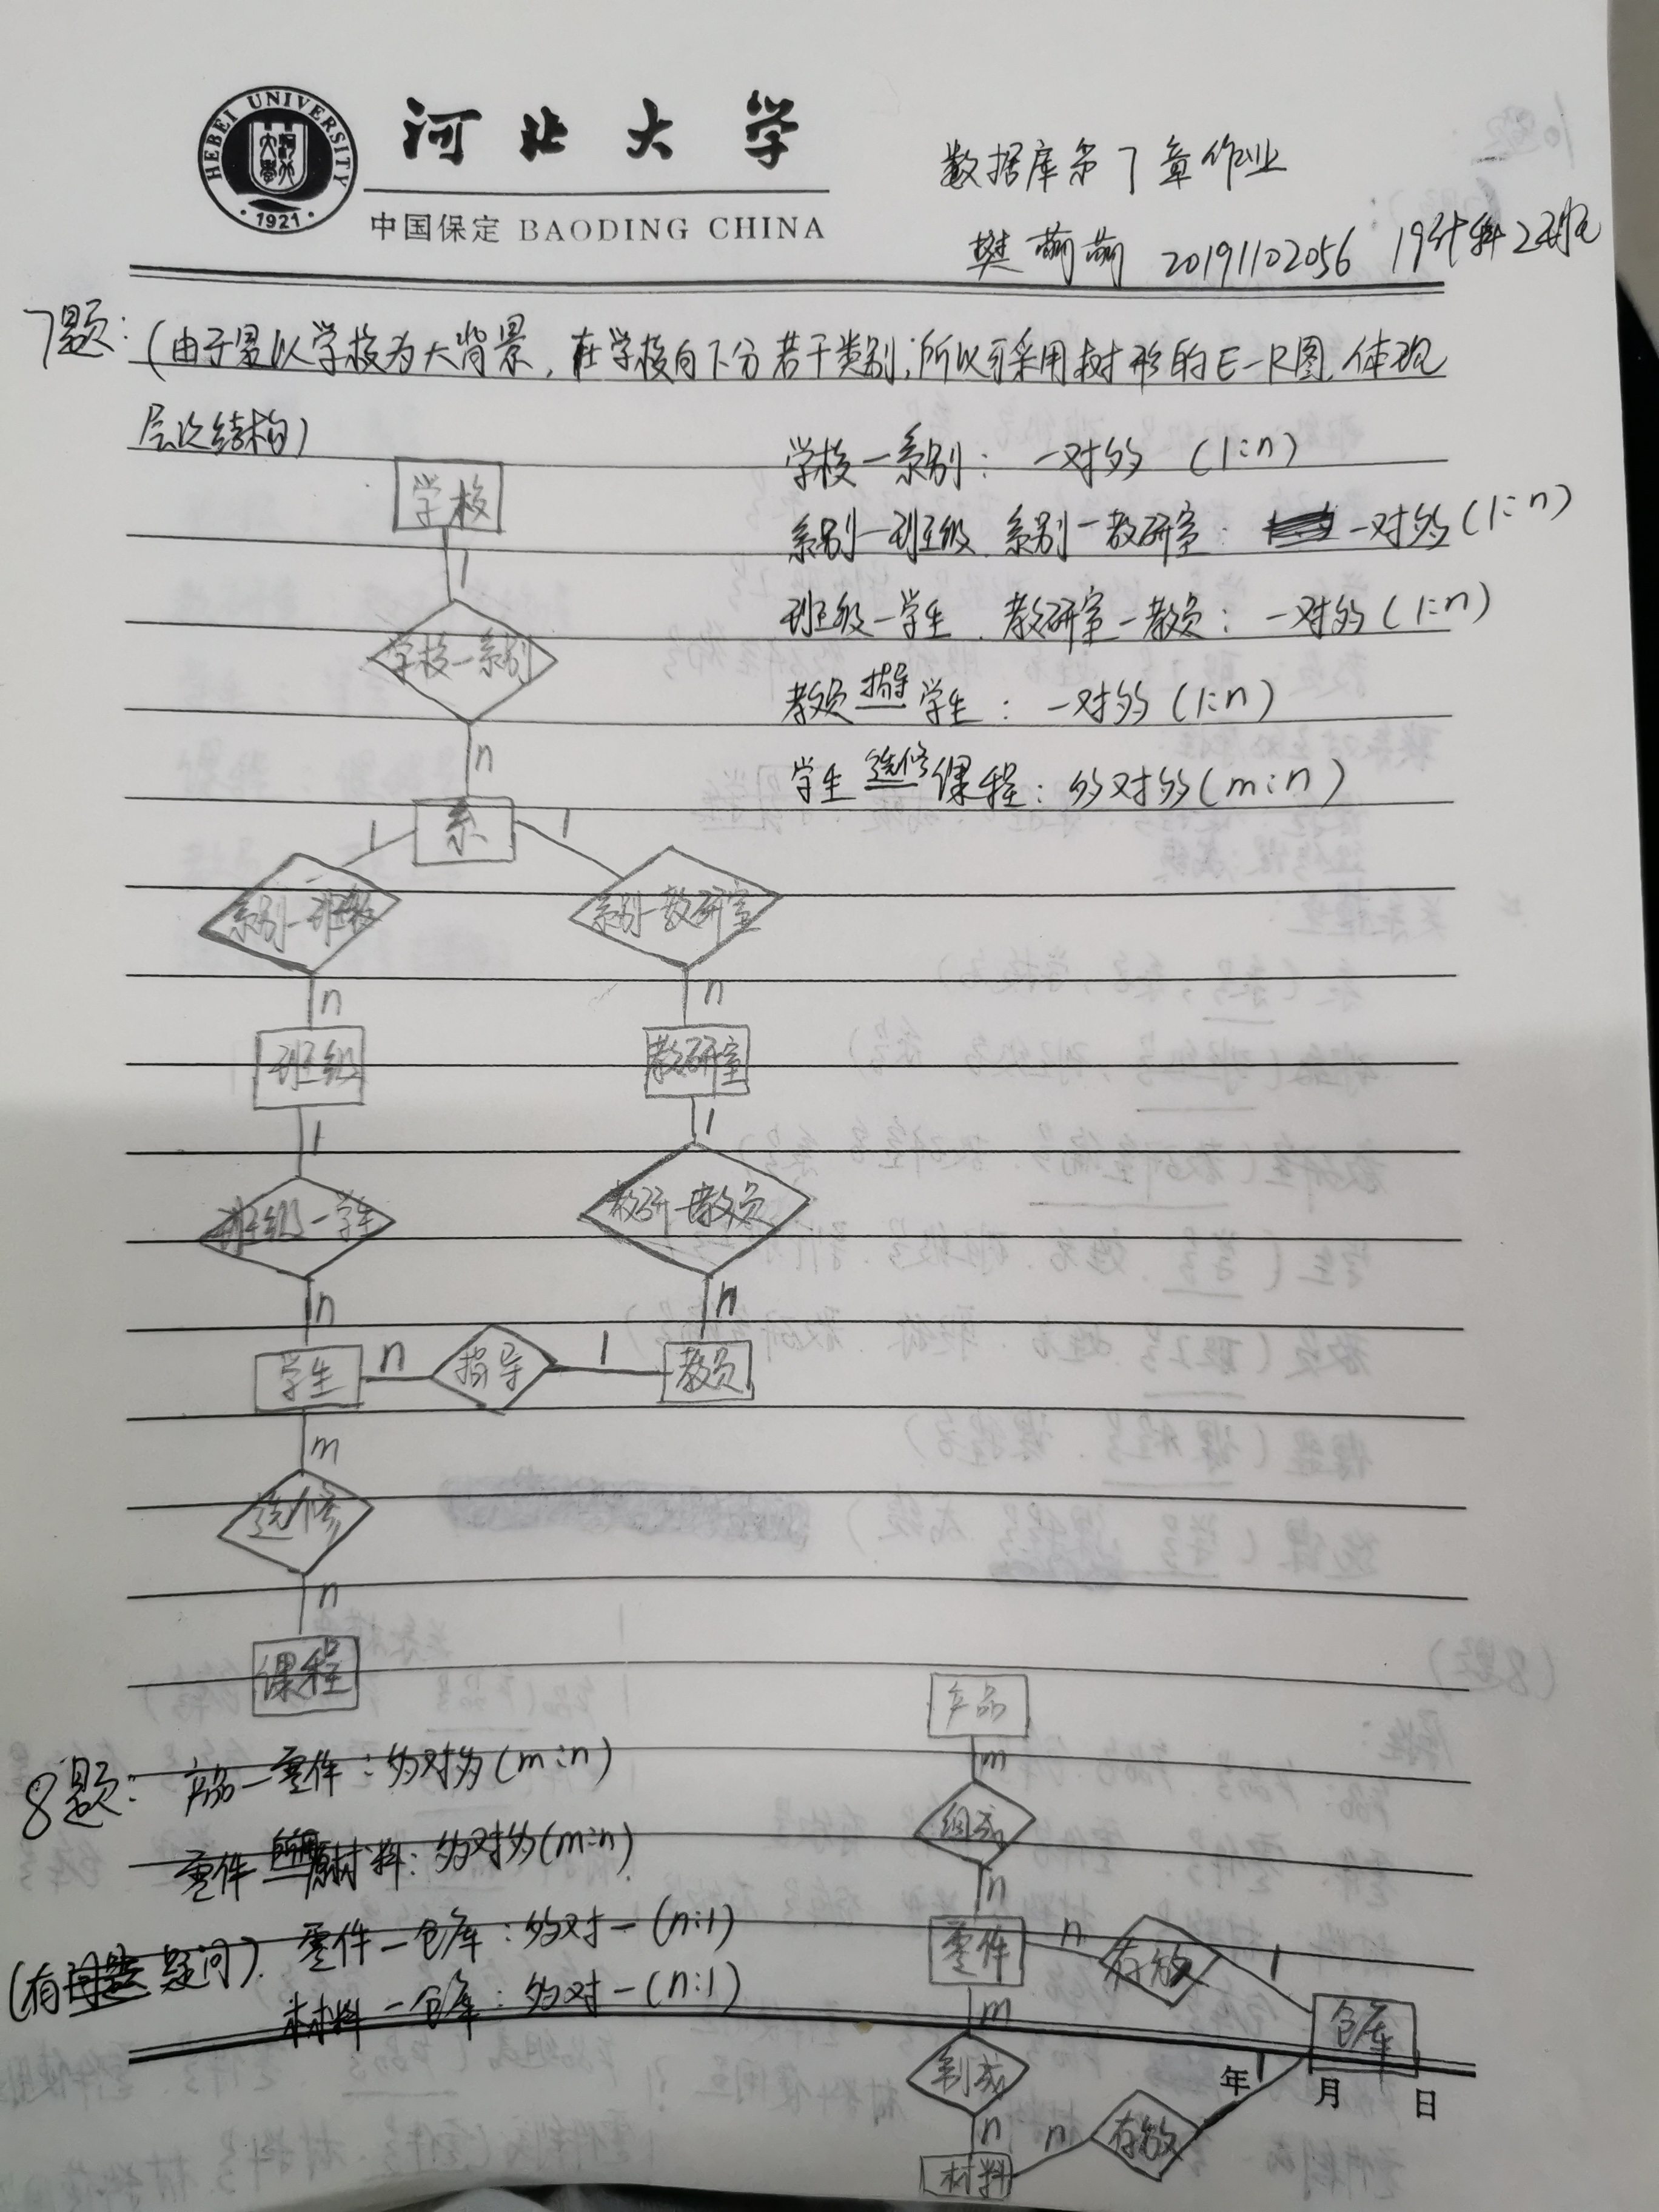 HEBEI UNIVERSITY
1921
河北大学
中国保定 BAODING CHINA
数据库第7章作业
樊萌萌 20191102056 19计科2班
7题:(由于是以学校为大背景,在学校向下分若干类别,所以可采用树形的E-R图,体现
层次结构)
学校—系别: 一对多 (1:n)
系别—班级、系别—教研室: 一对多(1:n)
班级—学生、教研室—教员: 一对多(1:n)
教员 指导 学生: 一对多(1:n)
学生 选修 课程: 多对多(m:n)
学校
1
学校—系别
n
系
1
1
系别—班级
系别—教研室
n
n
班级
教研室
1
1
班级—学生
教研—教员
n
n
学生
n
指导
1
教员
m
选修
n
课程
8题: 产品—零件:多对多(m:n)
零件 所用 原材料:多对多(m:n)
(有疑问). 零件—仓库:多对一(n:1)
材料—仓库:多对一(n:1)
产品
m
组成
n
零件
n
存放
1
仓库
m
制成
n
材料
n
存放
1
年 月 日